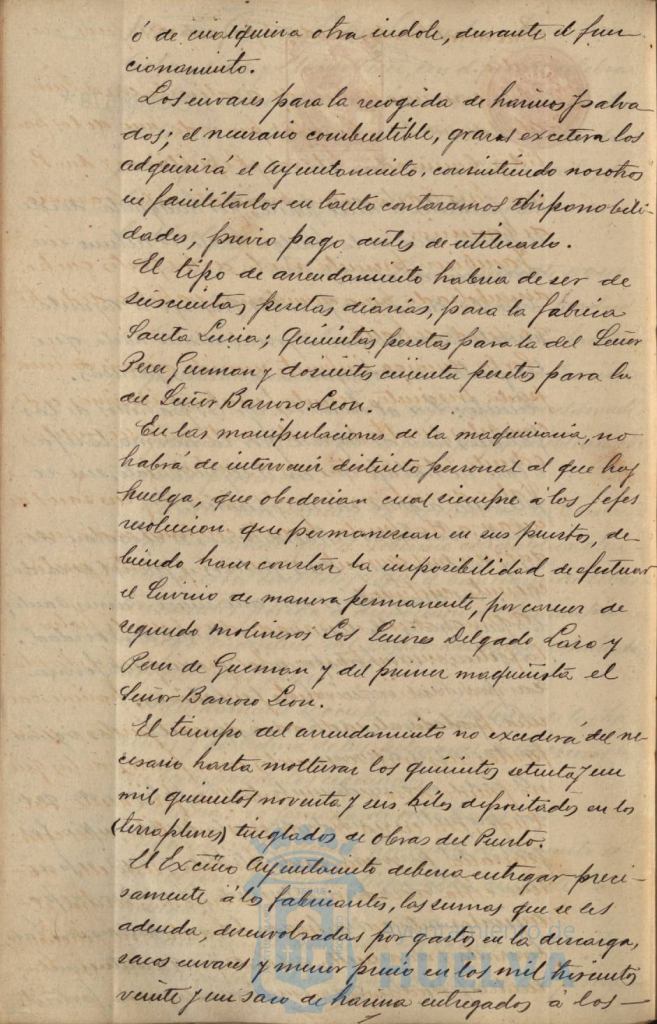 ó de cualquiera otra indole, durante el fun-
cionamiento.
Los envases para la recogida de harinas y salva
dos; el necesario combustible, grasas excetera los
adquirirá el Ayuntamiento, consintiendo nosotros
en facilitarlos en tanto contaramos disponobili-
dades, previo pago antes de utilizarlo.
El tipo de arrendamiento habria de ser de
seiscientas pesetas diarias, para la fabrica
Santa Lucia; quinientas pesetas para la del Señor
Perez Guzman y doscientos cincuenta pesetas para la
del Señor Barroso Leon.
En las manipulaciones de la maquinaria, no
habrá de intervenir distinto personal al que hoy
huelga, que obederian cual siempre a los Jefes
resolucion que permanezcan en sus puestos, de
biendo hacer constar la imposibilidad de efectuar
el Servicio de manera permanente, por carecer de
segundo molineros Los Señores Delgado Lazo y
Perez de Guzman y del primer maquinista el
Señor Barroso Leon.
El tiempo del arrendamiento no excederá del ne-
cesario hasta molturar los quinientos setenta y un
mil quinientos noventa y seis kilos depositados en los
(terraplenes) tinglados de obras del Puerto.
El Excmo Ayuntamiento deberia entregar preci-
samente á los fabricantes, las sumas que se les
adeuda, desembolsadas por gastos en la descarga,
sacos envases y menor precio en los mil trescientos
veinte y un saco de harina entregados á los-
Ayuntamiento de
HUELVA